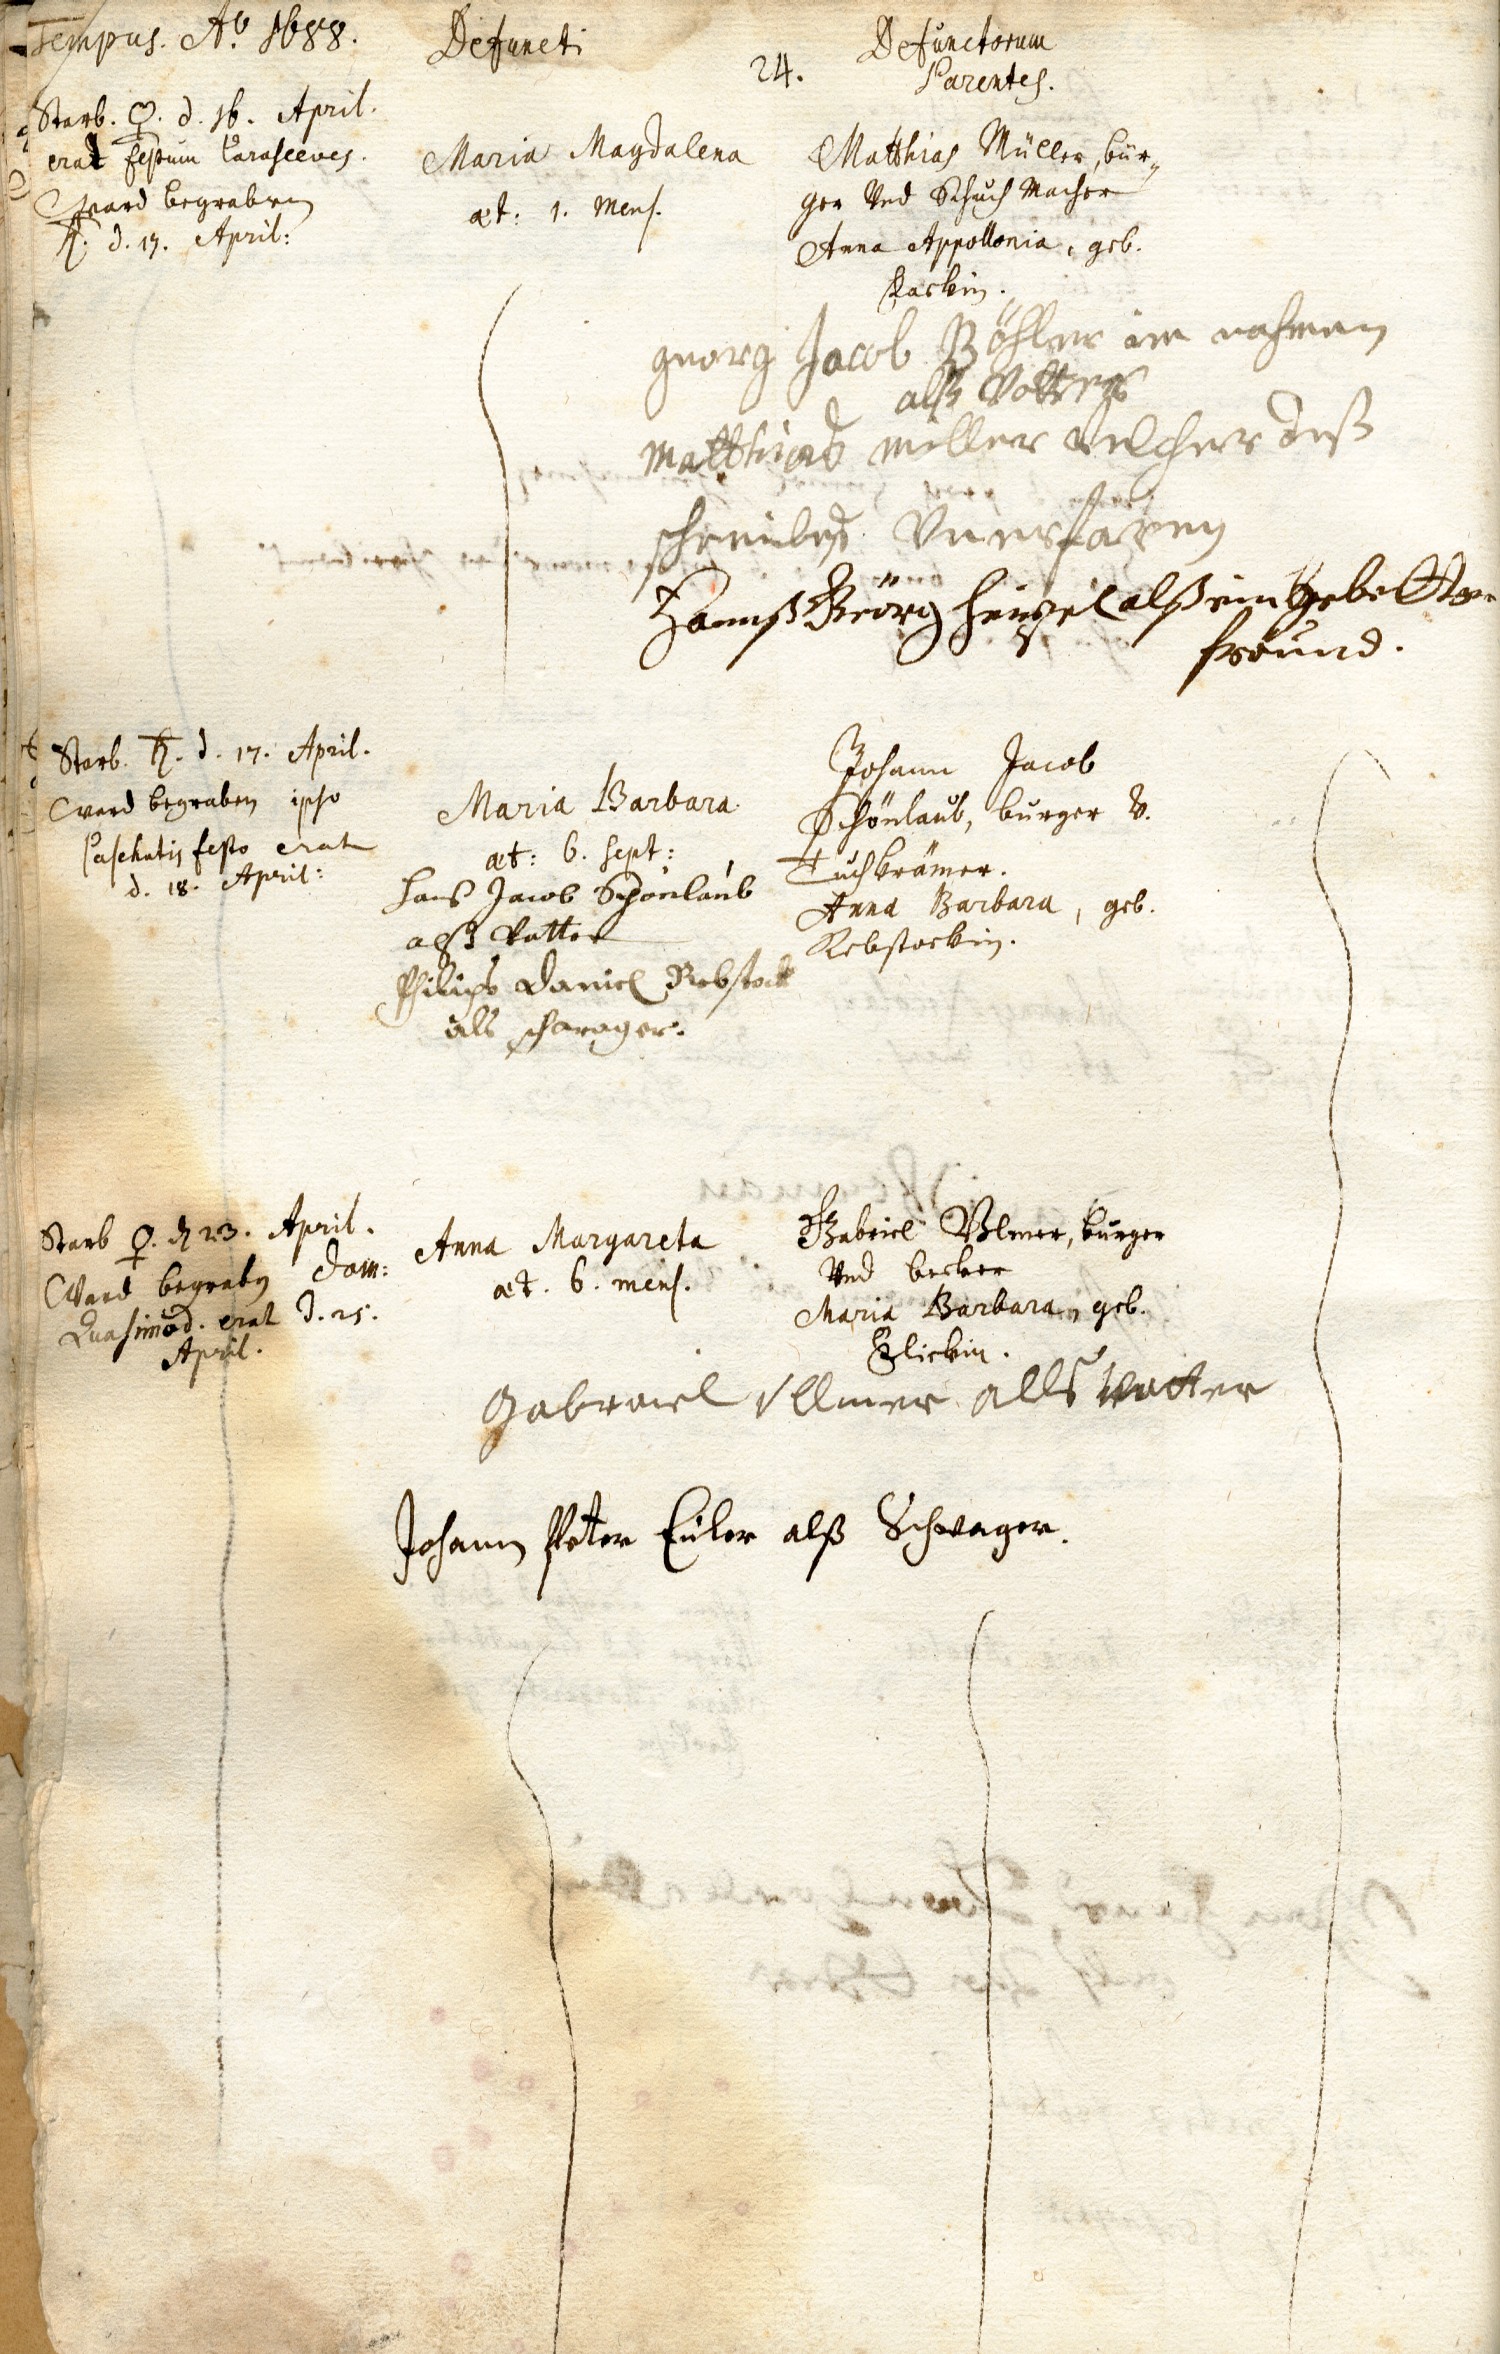 Tempus. Aõ. 1688.
Defuncti
24.
Defunctorum
Parentes.
Starb. ♀. d. 16. April.
erat festum Parasceves.
Ward begraben
♄. d. 17. April:
Maria Magdalena
æt: 1. Mens.
Matthias Müller, bür-
ger Vnd Schuch Macher
Anna Appollonia, geb.
georg Jacob Böhler im nahmen
alß Vatters
matthias miller welcher deß
schreibens Vnerfaren
Hannß Geörg alß ein
freund.
Starb. ♄. d. 17. April.
Ward begraben ipso
Paschatis festo erat
d. 18. April:
Maria Barbara
æt: 6. sept:
Hanß Jacob Schönlaub
alß Vatter
Philips Daniel Rebstock
als schwager.
Johann Jacob
Schönlaub, burger V.
Tuchkrämer.
Anna Barbara, geb.
Rebstockin.
Starb ♀. d. 23. April.
Ward begraben Dom:
Quasimod. erat d. 25.
April.
Anna Margareta
æt. 6. mens.
Gabriel Vlmer, burger
Vnd becker
Maria Barbara, geb.
Glickin.
Gabriel Ullmer alls Vatter
Johann Peter Euler alß Schwager.